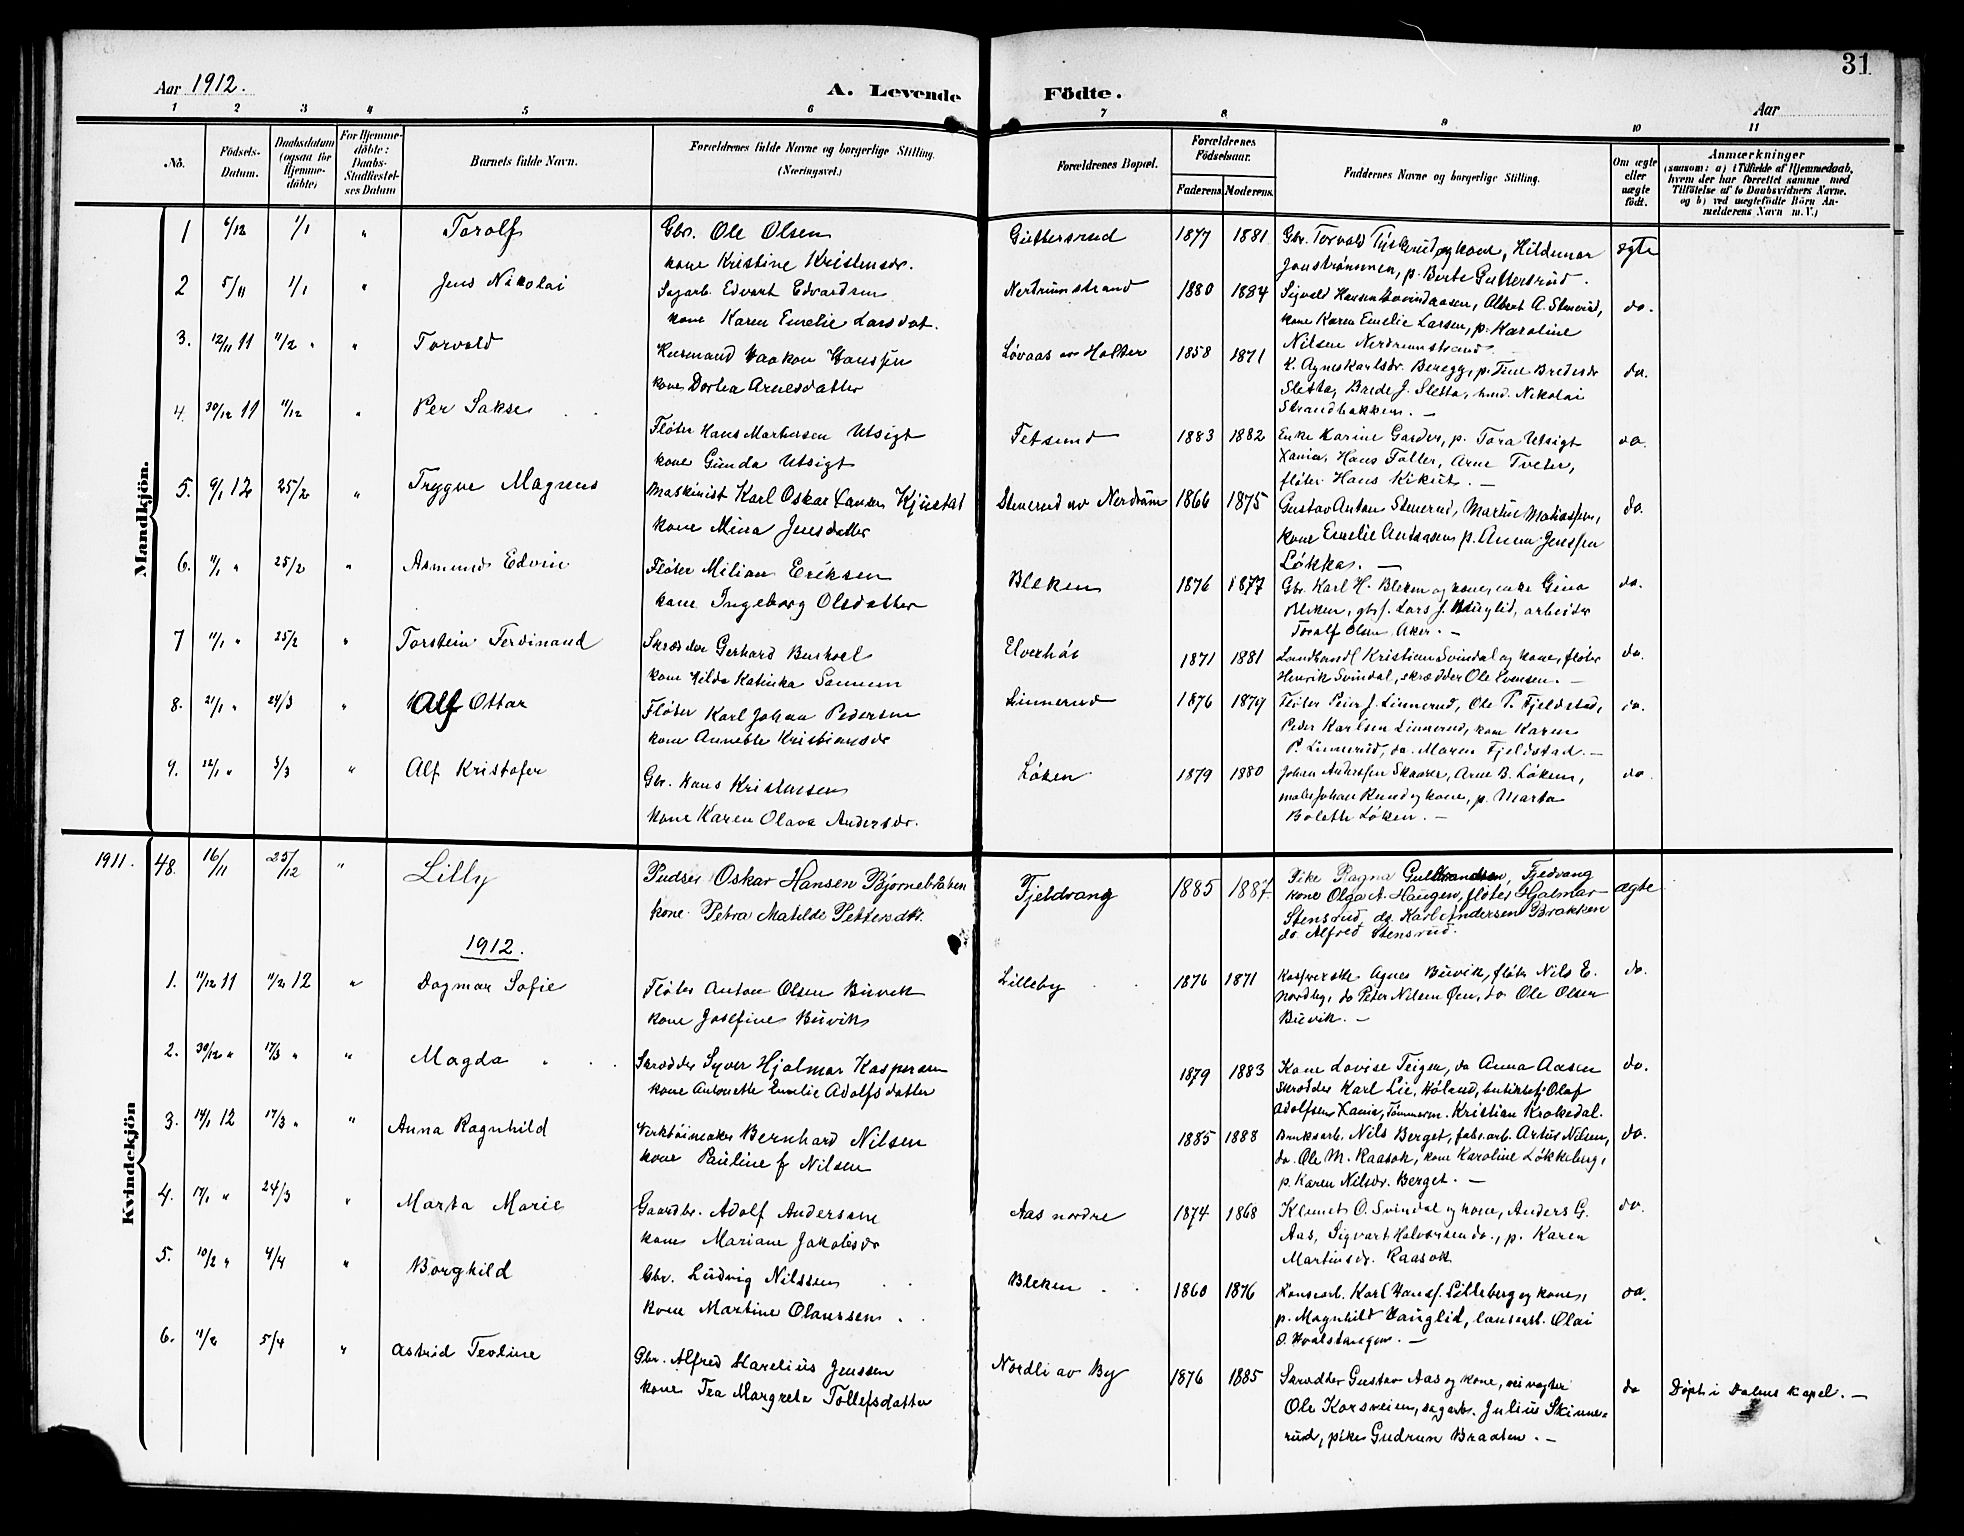 31
Aar 1912.
A. Levende Födte.
Aar
1 2 3 4 5 6 7 8 9 10 11
No.
Födsels-Datum.
Daabsdatum (ogsaa for Hjemme-döbte)
For Hjemme-döbte: Daabs-Stadfæstel-ses Datum
Barnets fulde Navn.
Forældrenes fulde Navne og borgerlige Stilling. (Næringsvei.)
Forældrenes Bopæl.
Forældrenes Födselsaar.
Faderens Moderens.
Faddernes Navne og borgerlige Stilling.
Om ægte eller uægte födt.
Anmærkninger
(saasom: a) i Tilfælde af Hjemmedaab, hvem der har forrettet samme med Tilföielse af to Daabsvidners Navne. og b) ved uægtefödte Börn An-melderens Navn m. V.)
Mandkjön.
1 6/12 1/1 " Torolf Gbr. Ole Olsen Guttersrud 1877 1881 Gbr. Torvald Tyskerud og kone, Hildemar ægte
kone Kristine Kristensdr. Jonstrømmen, p. Berte Guttersrud.
2 5/11 1/1 " Jens Nikolai Sagarb. Edvart Edvardsen Nerdrumstrand 1880 1884 Sigvald Hansen Hovindaasen, Albert A. Stenerud, do.
kone Karen Emelie Larsdat. kone Karen Emelie Larsen, p. Karoline
Nilsen Nerdrumstrand.
3. 12/11 11 11/2 " " Torvald Husmand Haakon Hanssen Løvaas av Holter 1858 1871 K. Agnes Karlsdr. Beregg, p. Tine Bredesdr do.
kone Dortea Arnesdatter Sletta, Brede J. Sletta, hmd. Nikolai
Strandbakken. —
4. 30/12 11 11/12 " Per Sakse Fløter Hans Martinsen Utsigt Fetsund 1883 1882 Enke Karine Garder, p. Tora Utsigt do.
kone Gunda Utsigt Xania, Hans Faller, Arne Tveter,
fløter Hans Kikut. —
5. 9/1 12 25/2 " Trygve Magnus Maskinist Karl Oskar Larsen Kjustad Stenerud av Nerdrum 1866 1875 Gustav Anton Stenerud, Martin Matiassen, do.
kone Mina Jensdatter kone Emelie Antonsen, p. Anna Jenssen
Løkka. —
6. 11/1 " 25/2 " Asmund Edvin Fløter Milian Eriksen Bleken 1876 1877 Gbr. Karl H. Bleken og kone, enke Gina do.
kone Ingeborg Olsdatter Bleken, gbf. Lars J. Hauglid, arbeider
Toralf Olsen Aker. —
7 11/1 " 25/2 " Torstein Ferdinand Skrædder Gerhard Buskoel Elverhøi 1871 1881 Landhandl Kristian Svindal og kone, fløter do.
kone Hilda Katinka Sannum Henrik Svindal, skrædder Ole Evensen. —
8. 21/1 " 24/3 " Alf Ottar Fløter Karl Johan Pedersen Linnerud 1876 1879 Fløter Peier J. Linnerud, Ole P. Fjeldstad, do.
kone Annette Kristiansdr Peder Karlsen Linnerud, kone Karen
P. Linnerud, do. Maren Fjeldstad. —
9. 22/1 " 3/3 " Alf Kristofer Gbr. Hans Kristensen Løken 1879 1880 Johan Anderssen Skaarer, Arne B. Løken, do
kone Karen Olava Andersdr. maler Johan Rund og kone, p. Marta
Bolette Løken. —
Kvindekjön
1911. 48. 16/11 25/12 " Lilly Pudser Oskar Hansen Bjørnebraten Fjeldvang 1885 1887. Pike Ragna Gulbrandsen, Fjedvang ægte
kone Petra Matilde Pettersdtr. kone Olga A. Haugen, fløter Hjalmar
Stensrud, do. Karl Andersen Brakken
do. Alfred Stensrud.
1912.
1. 11/12 11 11/2 12 " Dagmar Sofie Fløter Anton Olsen Buvik Lilleby 1876 1871 Agnes Buvik, fløter Nils E. do.
kone Josefine Buvik Nordby, do Peter Nilsen Øen, do Ole Olsen
Buvik. —
2. 30/12 " 17/3 " " Magda Skrædder Syver Hjalmar Kaspersen 1879 1883 Kone Lovise Teigen, do Anna Aasen do.
kone Antonette Emelie Adolfsdatter Skrædder Karl Lie, Høland, butikbetj Olaf
Adolfsen Xania, Tømmerm. Kristian Krokedal.
3. 14/1 12 17/3 " " Anna Ragnhild Verktøimaker Bernhard Nilsen 1885 1888 Bruksarb. Nils Berget, fabr.arb. Artur Nilsen, do.
kone Pauline f Nilsen do. Ole M. Raasok, kone Karoline Løkkeberg,
p. Karen Nilsdr. Berget. —
4. 17/1 " 24/3 " Marta Marie Gaardbr. Adolf Andersen Aas nordre 1874 1868 Klemet O. Svindal og kone, Anders G. do.
kone Mariane Jakobsdr Aas, Sigvart Halvorsen do., p. Karen
Martinsdr. Raasok
5. 10/2 " 4/4 " Borghild Gbr. Ludvig Nilssen Bleken 1860 1876 Karl Hansf. Lilleberg og kone, do.
kone Martine Olaussen. p. Magnhild Hauglid, landarb. Olai
O. Kvalstangen. —
6. 11/2 5/4 " Astrid Teoline Gbr. Alfred Karelius Jenssen Nordli av By 1876 1885 Skrædder Gustav Aas og kone, veivogter do Døpt i Dalens kapel. —
kone Tea Margrete Tollefsdatter Ole Korsveien, sagarb. Julius Skinne-
rud, pike Gudrun Braaten. —